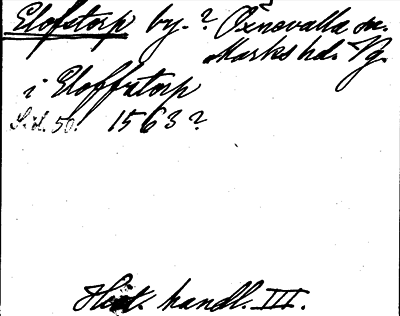 Elofstorp by. ? Öxnevalla sn.
Marks hd. Vg.
i Eloffztorp
Sid. 50. 1563?
Hist. handl. III.